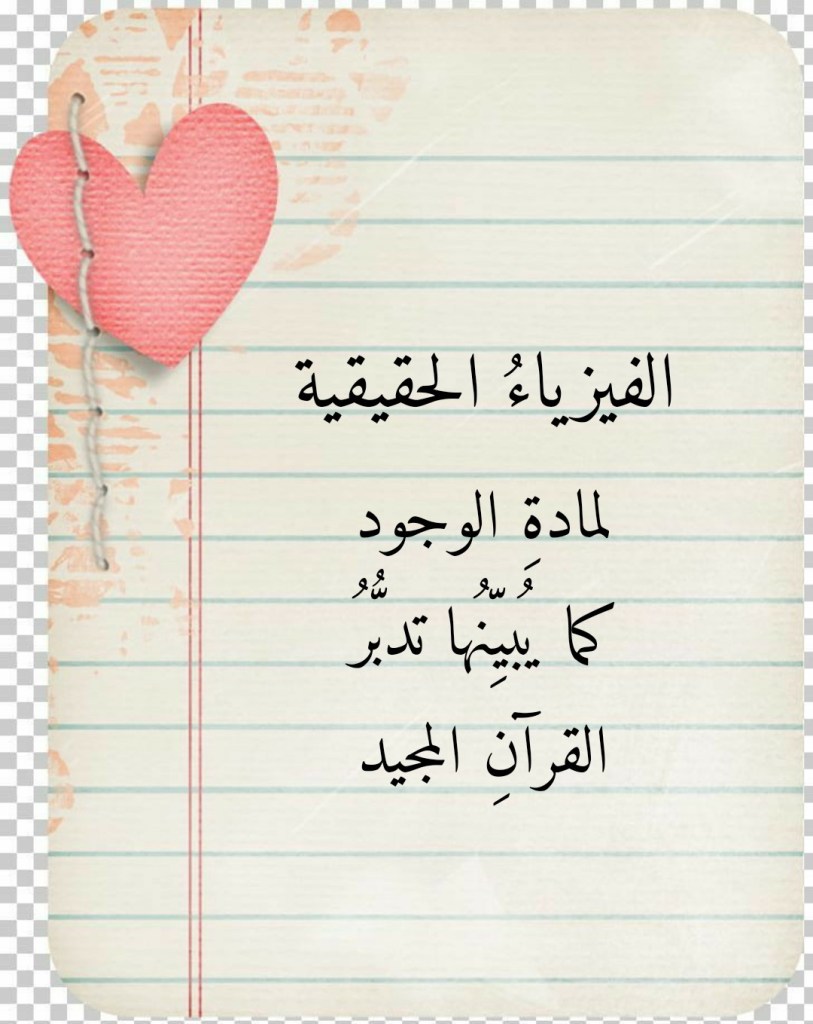 الفيزياءُ الحقيقية
لمادةِ الوجود
كما يُبيِّنُها تدبُّرُ
القرآنِ المجيد